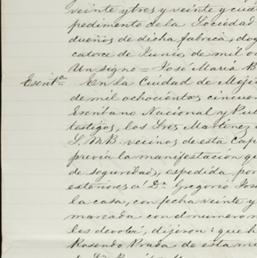 veinte y tres y veinte y cua
pedimento de la Sociedad
dueños de dicha fabrica, doy
catorce de Junio de mil o
Un signo = José Maria B
Escrit.ª En la Ciudad de Meji
de mil ochocientos cincuen
Escribano Nacional y Pub
testigos, los Sres Martinez,
S. M B vecinos de esta Cap
previa la manifestacion q
de seguridad, espedida por
esteriores á D.n Gregorio José
la casa, con fecha veinte y
marcada con el numero
les devolví, dijeron: que h
Rosendo Prada de esta m